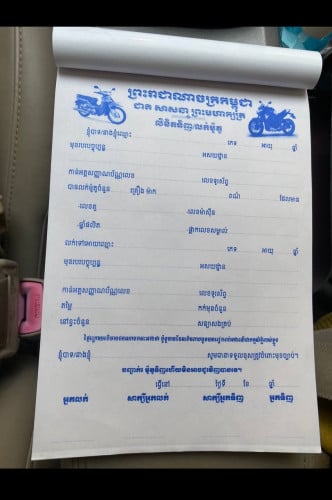 ព្រះរាជាណាចក្រកម្ពុជា
ជាតិ សាសនា ព្រះមហាក្សត្រ
លិខិតទិញ/លក់ម៉ូតូ
ខ្ញុំបាទ/នាងខ្ញុំឈ្មោះ ភេទ អាយុ ឆ្នាំ
មុខរបរបច្ចុប្បន្ន អាសយដ្ឋាន
កាន់អត្តសញ្ញាណប័ណ្ណលេខ លេខទូរស័ព្ទ
បានលក់ម៉ូតូចំនួន គ្រឿង ម៉ាក ពណ៌ ដែលមាន
-លេខតួ -លេខម៉ាស៊ីន
-ឆ្នាំផលិត -ផ្លាកលេខសម្គាល់
លក់ទៅអោយឈ្មោះ ភេទ អាយុ ឆ្នាំ
មុខរបរបច្ចុប្បន្ន អាសយដ្ឋាន
កាន់អត្តសញ្ញាណប័ណ្ណលេខ លេខទូរស័ព្ទ
តម្លៃ កក់មុនចំនួន
នៅខ្វះចំនួន សន្យាសងគ្រប់
ខ្ញុំបាទ/នាងខ្ញុំ សូមធានាទទួលខុសត្រូវចំពោះមុខច្បាប់។
បញ្ជាក់៖ ម៉ូតូទិញហើយមិនអាចដូរវិញបានទេ។
ធ្វើនៅ ថ្ងៃទី ខែ ឆ្នាំ
អ្នកលក់ សាក្សីអ្នកលក់ សាក្សីអ្នកទិញ អ្នកទិញ